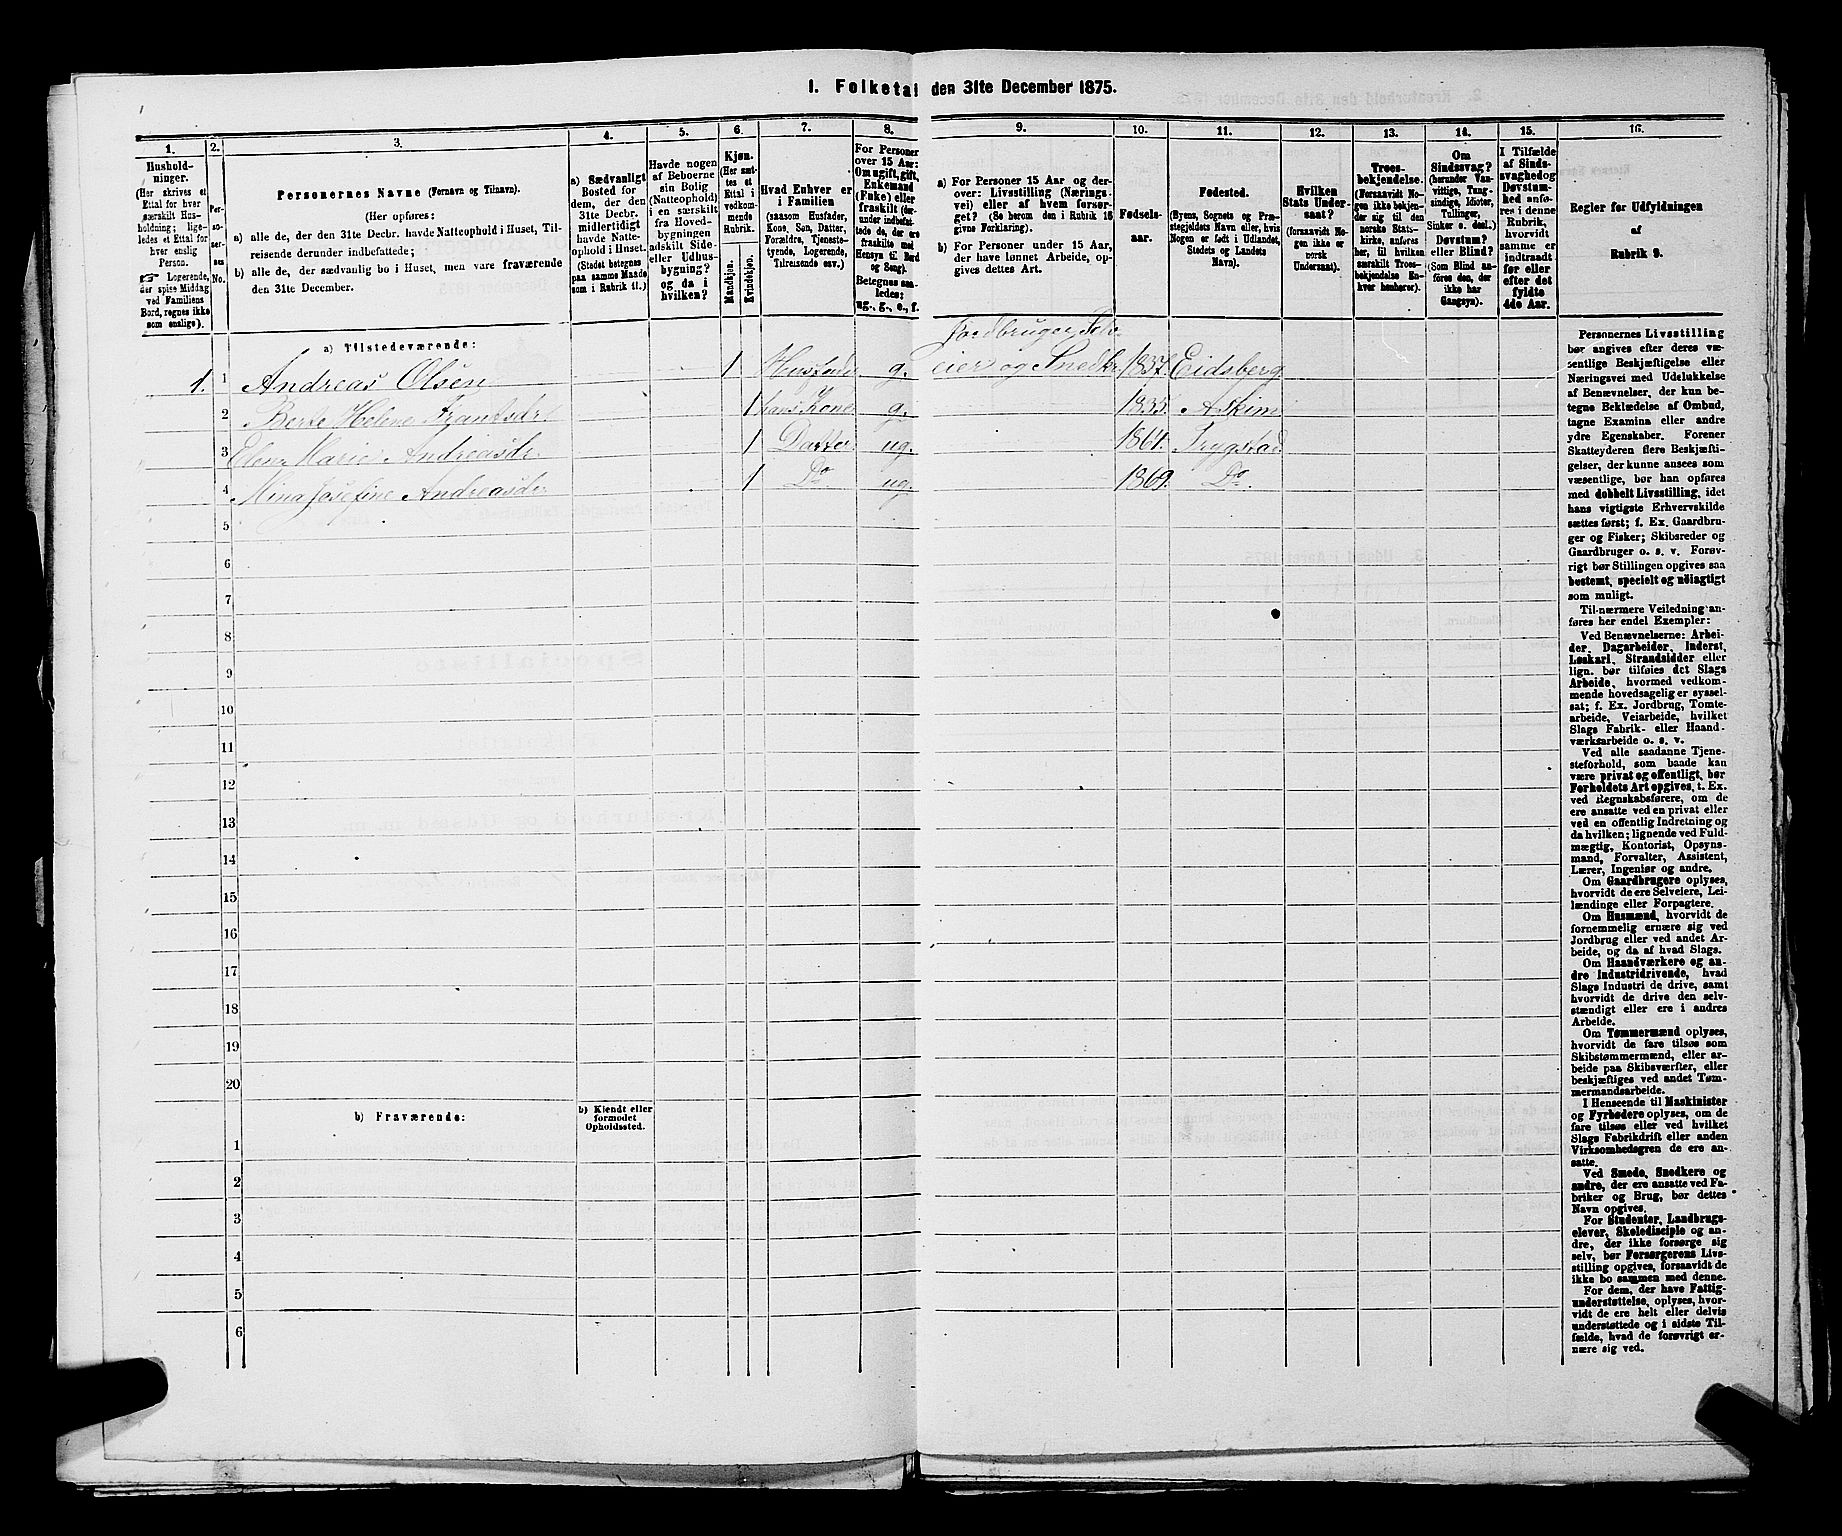 1. Folketal den 31te December 1875.
1. 2. 3. 4. 5. 6. 7. 8. 9. 10. 11. 12. 13. 14. 15. 16.
Hushold-
ninger.
(Her skrives et
Ettal for hver
særskilt Hus-
holdning; lige-
ledes et Ettal for
hver enslig
Person.
☞ Logerende,
der spise Middag
ved Familiens
Bord, regnes ikke
som enslige).
Per-
so-
ner-
nes
No.
Personernes Navne (Fornavn og Tilnavn).
(Her opføres:
a) alle de, der den 31te Decbr. havde Natteophold i Huset, Til-
reisende derunder indbefattede;
b) alle de, der sædvanlig bo i Huset, men vare fraværende
den 31te December.
a) Sædvanligt
Bosted for
dem, der den
31te Decbr.
midlertidigt
havde Natte-
ophold i Huset.
(Stedet betegnes
paa samme Maade
som i Rubrik 11.)
Havde nogen
af Beboerne
sin Bolig
(Natteophold)
i en særskilt
fra Hoved-
bygningen
adskilt Side-
eller Udhus-
bygning?
og da i
hvilken?
Kjøn.
(Her sæt-
tes et
Ettal i
vedkom-
mende
Rubrik.
Mandkjøn.
Kvindekjøn.
Hvad Enhver er
i Familien
(saasom Husfader,
Kone, Søn, Datter,
Forældre, Tjeneste-
tyende, Logerende,
Tilreisende osv.)
For Personer
over 15 Aar:
Om ugift, gift,
Enkemand
(Enke) eller
fraskilt (der-
under indbefat-
tede de, der ere
fraskilte med
Hensyn til Bord
og Seng).
Betegnes saa-
ledes:
ug., g., e., f.
a) For Personer 15 Aar og der-
over: Livsstilling (Nærings-
vei) eller af hvem forsør-
get? (Se herom den i Rubrik 16
givne Forklaring).
b) For Personer under 15 Aar,
der have lønnet Arbeide, op-
gives dettes Art.
Fødsels-
aar.
Fødested.
(Byens, Sognets og Præ-
stegjeldets Navn eller, hvis
Nogen er født i Udlandet,
Stedets og Landets
Navn).
Hvilken
Stats Under-
saat?
(foraavidt No-
gen ikke er
norsk
Undersaat).
Troes-
bekjendelse.
(Forsaavidt No-
gen ikke bekjen-
der sig til den
norske Stats-
kirke, anføres
her, til hvilken
særskilt Troes-
bekjendelse En-
hver henhører).
Om
Sindssvag?
(herunder Van-
vittige, Tung-
sindige, Idioter,
Tullinger,
Sinker o. desl.)
Døvstum?
eller Blind?
(Som Blind an-
føres den, der
ikke har
Gangsyn).
I Tilfælde
af Sinds-
svaghed og
Døvstum-
hed anfø-
res i denne
Rubrik,
hvorvidt
samme er
indtraadt
før eller
efter det
fyldte
4de Aar.
Regler for Udfyldningen
af
Rubrik 9.
a) Tilstedeværende:
Jordbruger, Selv-
1. 1 Andreas Olsen 1 Husfader g. eier og Snedker 1837. Eidsberg
2 Berte Helene Frantsdr. 1 hans Kone g. 1835. Askim
3 Elen Marie Andreasdr. 1 Datter ug. 1861. Trygstad
4 Mina Josefine Andreasdr. 1 Do ug. 1869. Do.
5
6
7
8
9
10
11
12
13
14
15
16
17
18
19
20
b) Fraværende:
b) Kjendt eller
formodet
Opholdssted.
1
2
3
4
5
6
Personernes Livsstilling
bør angives efter deres væ-
sentlige Beskjæftigelse eller
Næringsvei med Udelukkelse
af Benævnelser, der kun be-
tegne Beklædelse af Ombud,
tagne Examina eller andre
ydre Egenskaber. Forener
Skatteyderen flere Beskjæfti-
gelser, der kunne ansees som
væsentlige, bør han opføres
med dobbelt Livsstilling, idet
hans vigtigste Erhvervskilde
sættes først; f. Ex. Gaardbru-
ger og Fisker; Skibsreder og
Gaardbruger o. s. v. Forøv-
rigt bør Stillingen opgives saa
bestemt, specielt og nøiagtigt
som muligt.
Til nærmere Veiledning an-
føres her endel Exempler:
Ved Benævnelserne: Arbei-
der, Dagarbeider, Inderst,
Løskarl, Strandsidder eller
lign. bør tilføies det Slags
Arbeide, hvormed vedkom-
mende hovedsagelig er syssel-
sat; f. Ex. Jordbrug, Tomte-
arbeide, Veiarbeide, hvilket
Slags Fabrik- eller Haand-
værksarbeide o. s. v.
Ved alle saadanne Tjene-
steforhold, som baade kan
være privat og offentligt, bør
Forholdets Art opgives, t. Ex.
ved Regnskabsførere, om de
ere ansatte ved en privat eller
ved en offentlig Indretning og
da hvilken; lignende ved Fuld-
mægtig, Kontorist, Opsyns-
mand, Forvalter, Assistent,
Lærer, Ingeniør og andre.
Om Gaardbrugere oplyses,
hvorvidt de ere Selveiere, Lei-
lændinge eller Forpagtere.
Om Husmænd, hvorvidt de
fornemmelig ernære sig ved
Jordbrug eller ved andet Ar-
beide, og da af hvad Slags.
Om Haandværkere og an-
dre Industridrivende, hvad
Slags Industri de drive, samt
hvorvidt de drive den selv-
stændigt eller ere i andres
Arbeide.
Om Tømmermænd oplyses,
hvorvidt de fare tilsøs som
Skibstømmermænd, eller ar-
beide paa Skibsværfter, eller
beskjæftiges ved andet Tøm-
mermandsarbeide.
I Henseende til Maskinister
og Fyrbødere oplyses, om de
fare tilsøs eller ved hvilket
Slags Fabrikdrift eller anden
Virksomhedsgren de ere an-
satte.
Ved Smede, Snedkere og
andre, der ere ansatte ved Fa-
briker og Brug, bør dettes
Navn opgives.
For Studenter, Landbrugs-
elever, Skoledisciple og an-
dre, der ikke forsørge sig
selv, bør Forsørgerens Livs-
stilling opgives, forsaavidt de
ikke bo sammen med denne.
For dem, der have Fattig-
understøttelse, oplyses, hvor-
vidt de ere helt eller delvis
understøttede og i sidste Til-
fælde, hvad de forøvrigt er-
nære sig ved.